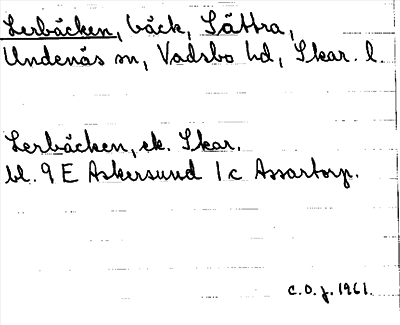 Lerbäcken, bäck, Sättra,
Undenäs sn, Vadsbo hd, Skar. l.
Lerbäcken, ek. Skar.
bl. 9 E Askersund 1 c Assartorp.
C.O.J. 1961.